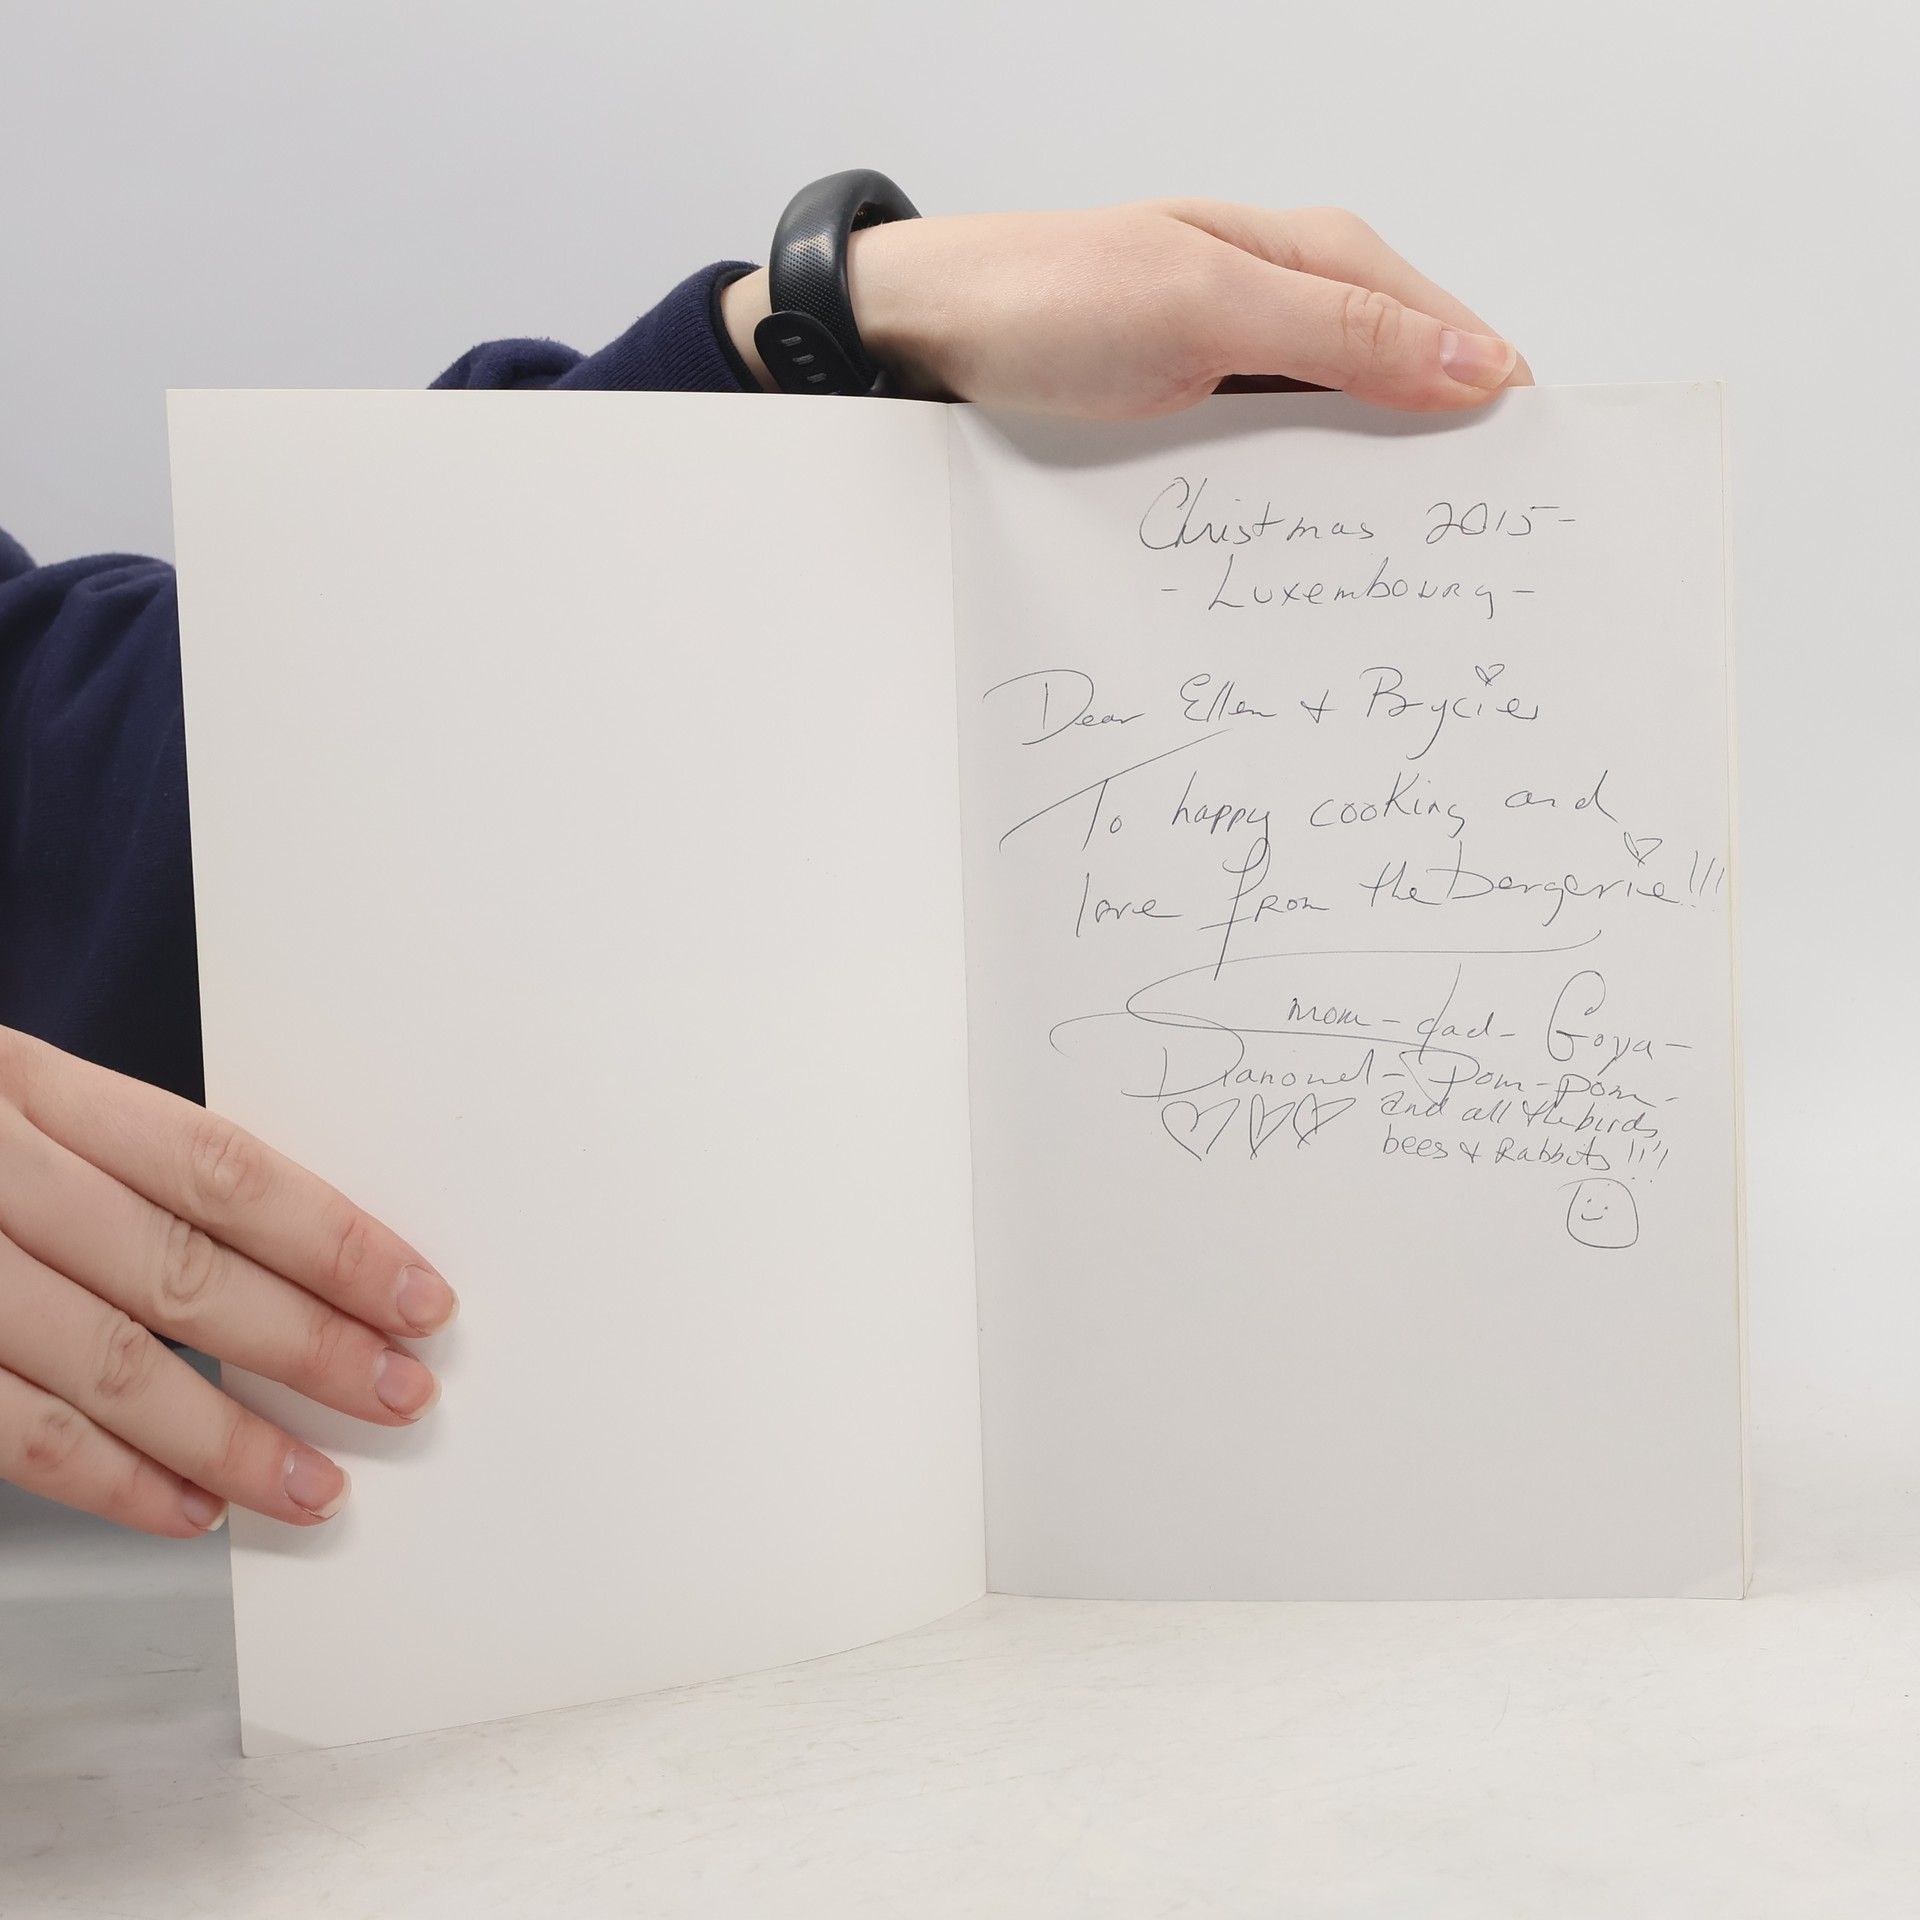 Christmas 2015-
- Luxembourg -
Dear Ellen & Brycie
To happy cooking and
love from the Bergerie!!!
mom - dad - Goya -
Pom-pom -
and all the birds,
bees & Rabbits!!!